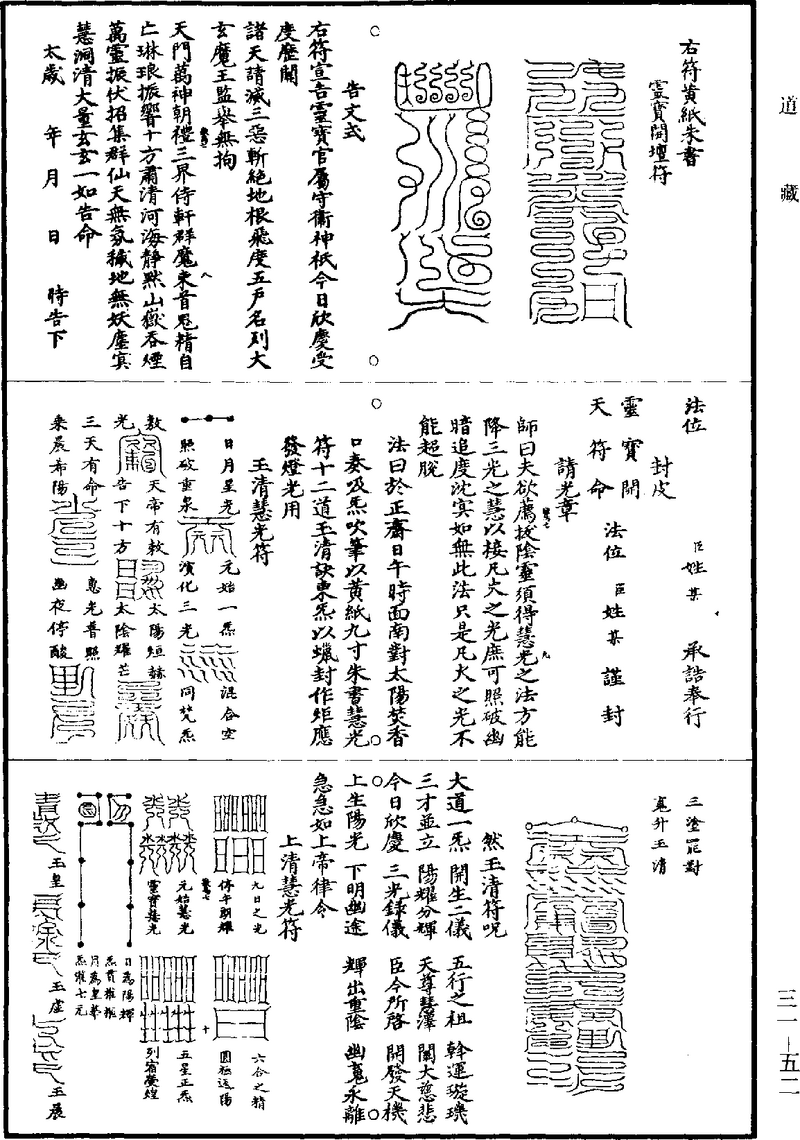 道藏
右符黃紙朱書
靈寶開壇符
告文式
右符宣告靈寶官屬守衛神祇今日欣慶受
度歷關
諸天請滅三惡斬絕地根飛度五戶名列大
玄魔王監舉無拘
天門萬神朝禮三界侍軒群魔束首鬼精自
亡琳琅振響十方肅清河海靜默山嶽吞煙
萬靈振伏招集群仙天無氛穢地無妖塵冥
慧洞清大量玄玄一如告命
太歲 年 月 日 時告下
法位 臣姓某 承誥奉行
封皮
靈寶開 法位 臣姓某謹封
天符命
請光章
師曰夫欲薦拔陰靈須得慧光之法方能
降三光之慧以接凡火之光庶可照破幽
暗追度沈冥如無此法只是凡火之光不
能超脫
法曰於正齋日午時面南對太陽焚香
口奏吸炁吹筆以黃紙九寸朱書慧光
符十二道玉清訣東炁以蠟封作炬應
發燈光用
玉清慧光符
日月星光 元始一炁 混合空
照破重泉 演化三光 同梵炁
敕 天帝有敕 太陽烜赫
光 告下十方 太陰耀芒
三天有命 惠光普照
乘晨希陽 幽夜停酸
三塗罷對
寃升玉清
然玉清符呪
大道一炁 開生二儀 五行之祖 斡運璇璣
三才並立 陽耀分輝 天尊慧澤 闡大慈悲
今日欣慶 三光錄儀 臣今所啓 開發天機
上生陽光 下明幽途 輝出重陰 幽魂永離
急急如上帝律令
上清慧光符
九日之光 六合之精
停午朝輝 圓極運陽
元始慧光 五星正炁
靈寶慈光 列宿凝煌
日為陽輝
月為皇華
玉皇 玉虛 玉晨
三一—五二